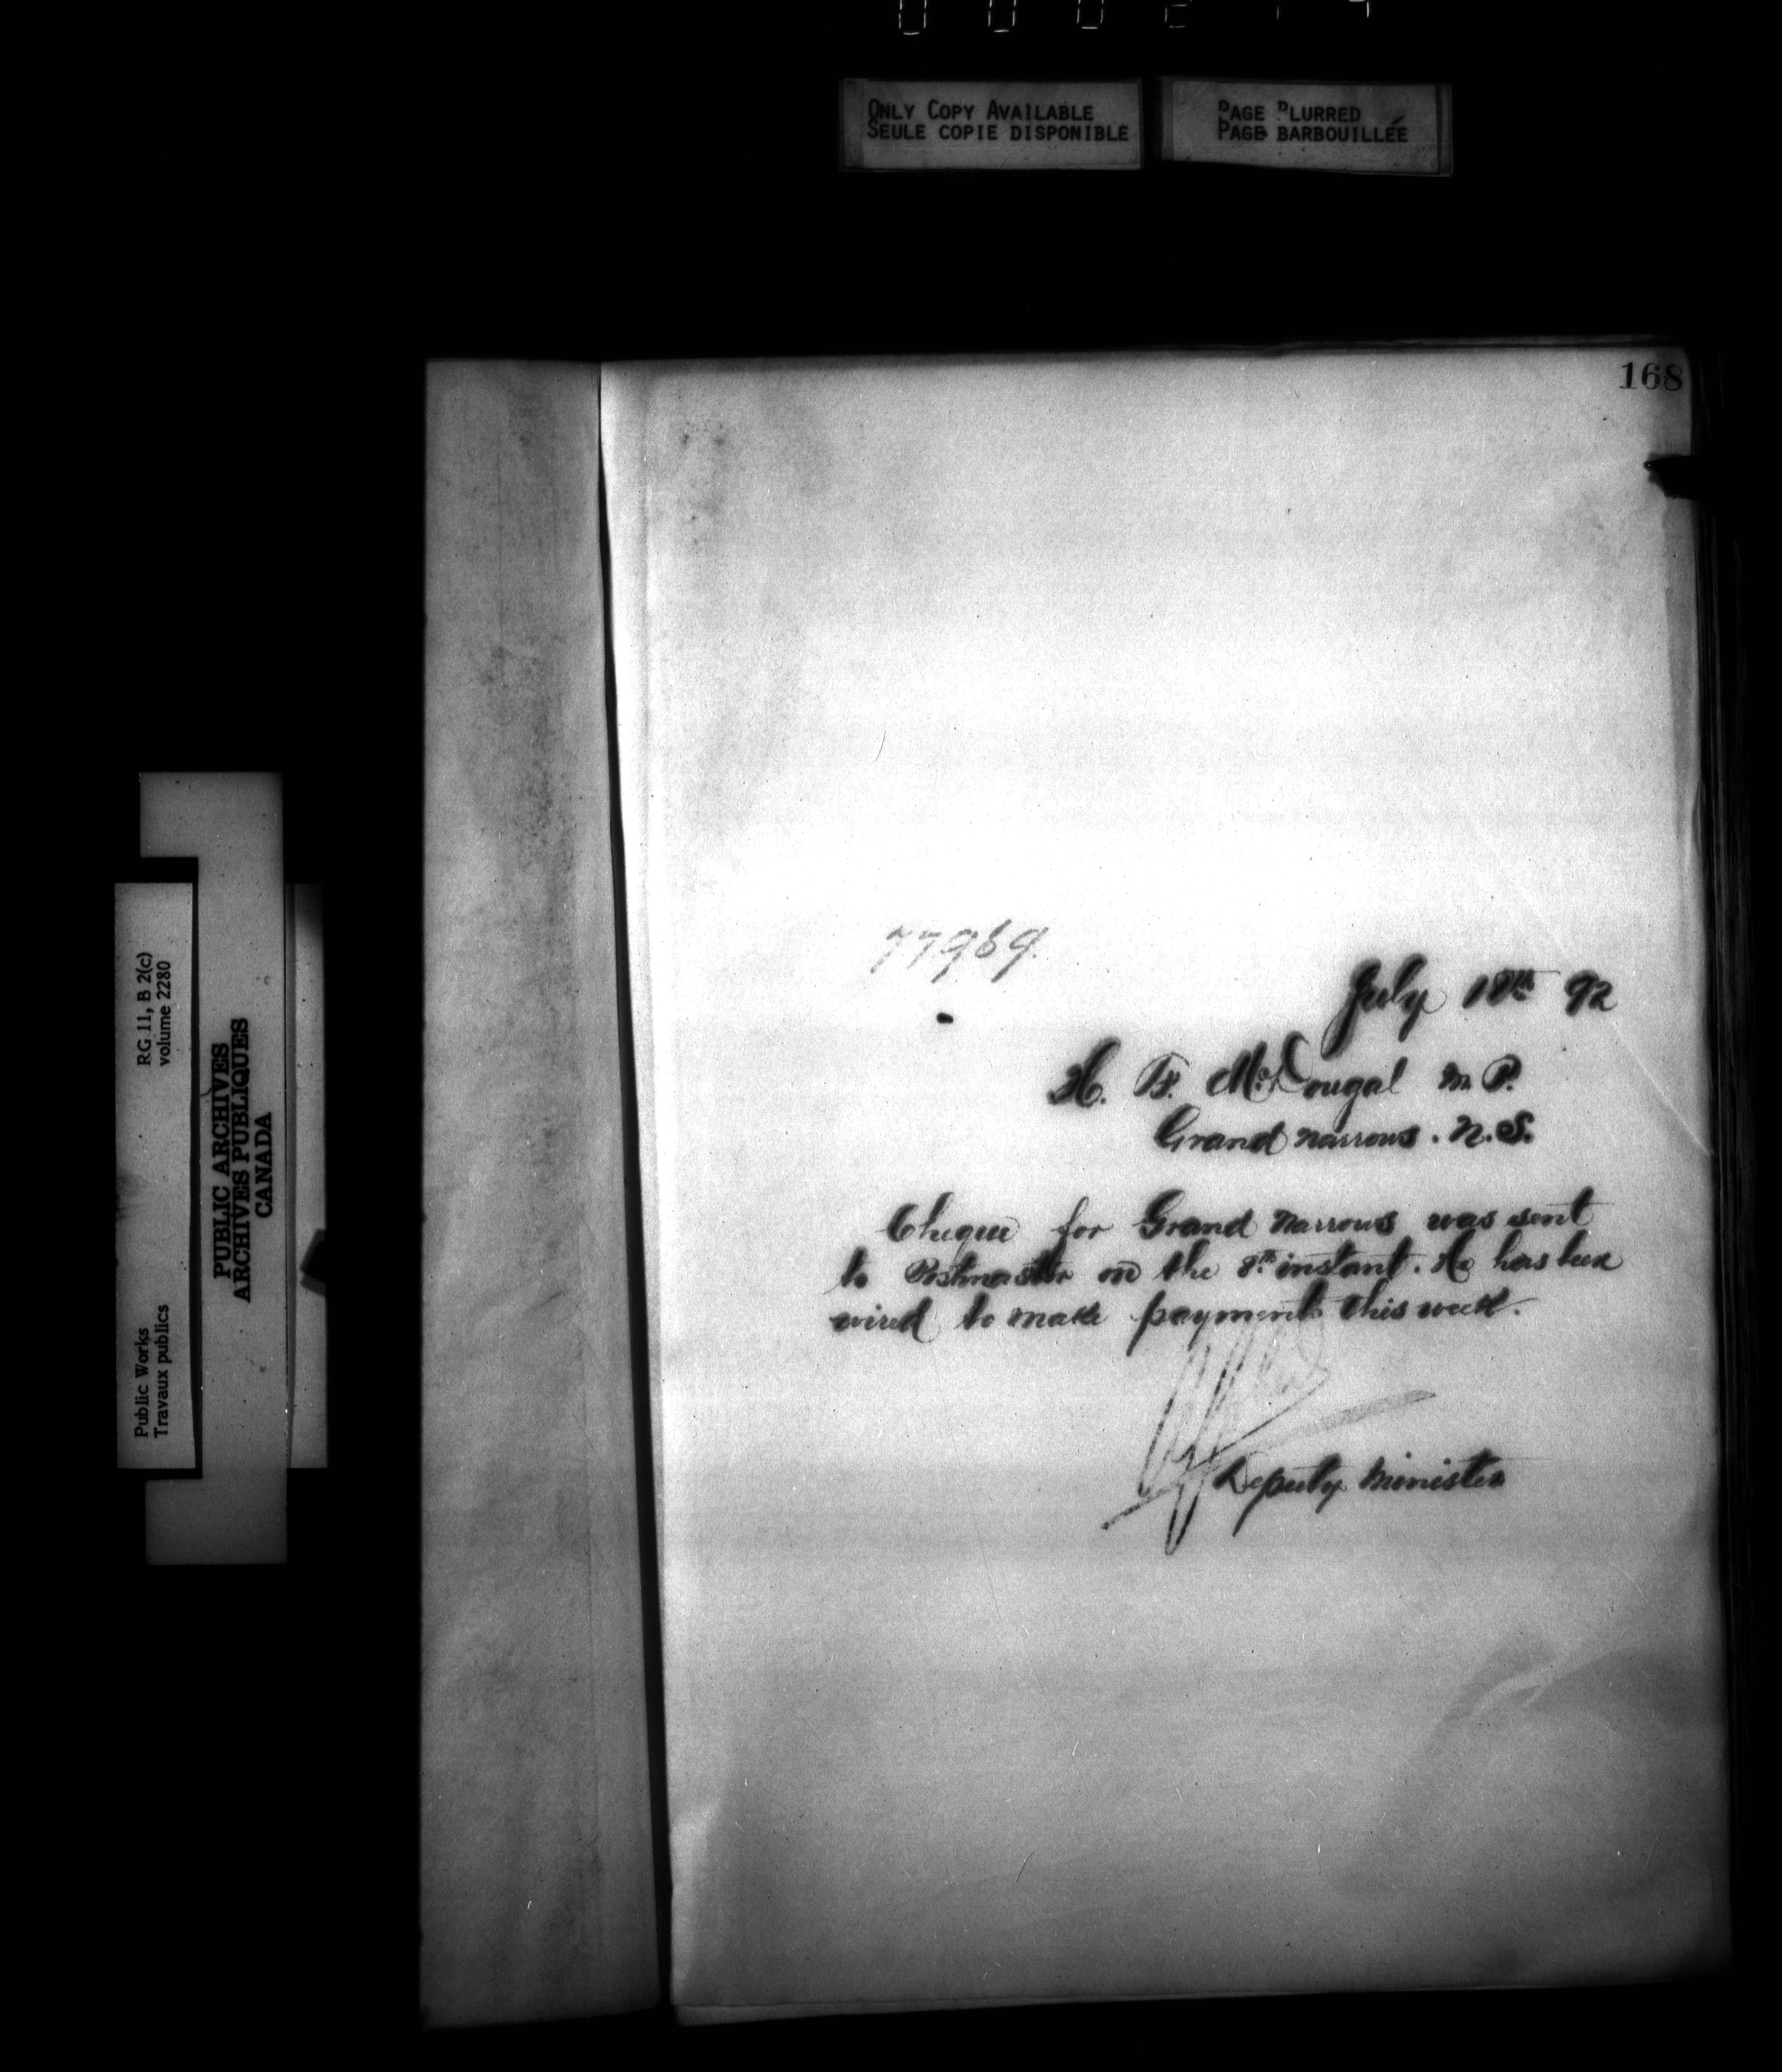 ONLY COPY AVAILABLE
SEULE COPIE DISPONIBLE
PAGE BLURRED
PAGE BARBOUILLÉE
168
77969.
July 18th 92
H. F. McDougal M.P.
Grand Narrows. N.S.
Cheque for Grand Narrows was sent
to Postmaster on the 8th instant. He has been
wired to make payments this week.
Deputy Minister
RG 11, B 2(c)
volume 2280
Public Works
Travaux publics
PUBLIC ARCHIVES
ARCHIVES PUBLIQUES
CANADA